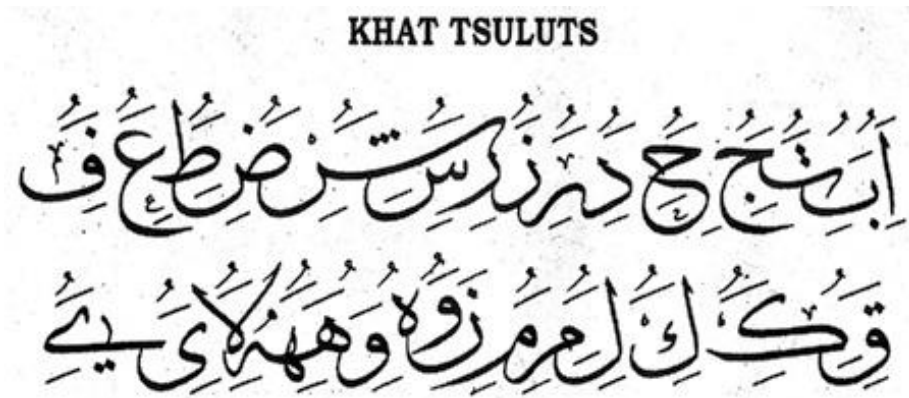 KHAT TSULUTS
ا ب ت ج ح د ر ز ر س ش ض ط ع ف
ق ك ك ل م ر م ز و ه و ه ه لا ي ي